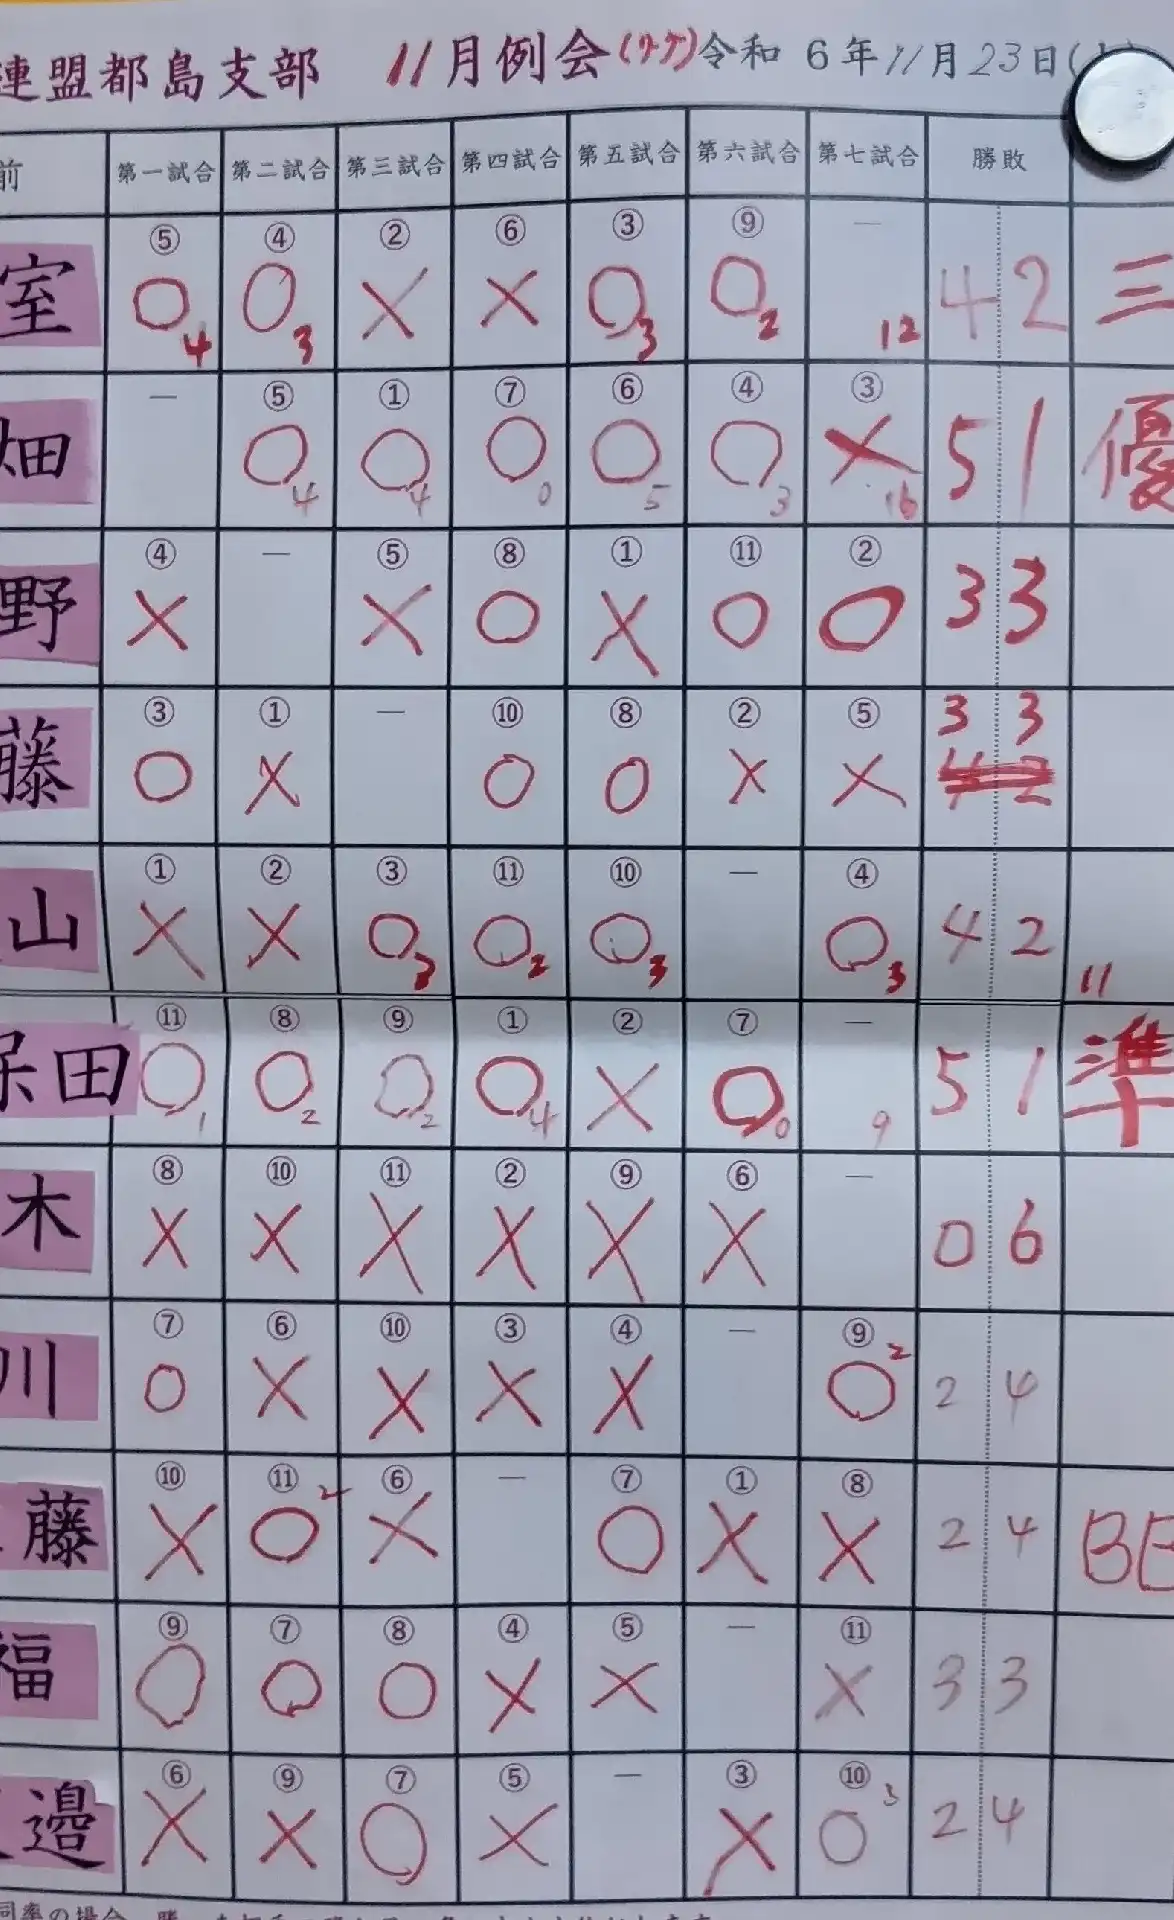 連盟都島支部 11月例会(ｳｰｹ)令和 6年11月23日(
前 第一試合 第二試合 第三試合 第四試合 第五試合 第六試合 第七試合 勝敗
室 ⑤○4 ④○3 ②× ⑥× ③○3 ⑨○2 — 12 4 2 三
畑 — ⑤○4 ①○4 ⑦○0 ⑥○5 ④○3 ③×16 5 1 優
野 ④× — ⑤× ⑧○ ①× ⑪○ ②○ 3 3
藤 ③○ ①× — ⑩○ ⑧○ ②× ⑤× 3 3
山 ①× ②× ③○3 ⑪○2 ⑩○3 — ④○3 4 2 11
保田 ⑪○1 ⑧○2 ⑨○2 ①○4 ②× ⑦○0 — 9 5 1 準
木 ⑧× ⑩× ⑪× ②× ⑨× ⑥× — 0 6
川 ⑦○ ⑥× ⑩× ③× ④× — ⑨○2 2 4
藤 ⑩× ⑪○2 ⑥× — ⑦○ ①× ⑧× 2 4 BB
福 ⑨○ ⑦○ ⑧○ ④× ⑤× — ⑪× 3 3
邉 ⑥× ⑨× ⑦○ ⑤× — ③× ⑩○3 2 4